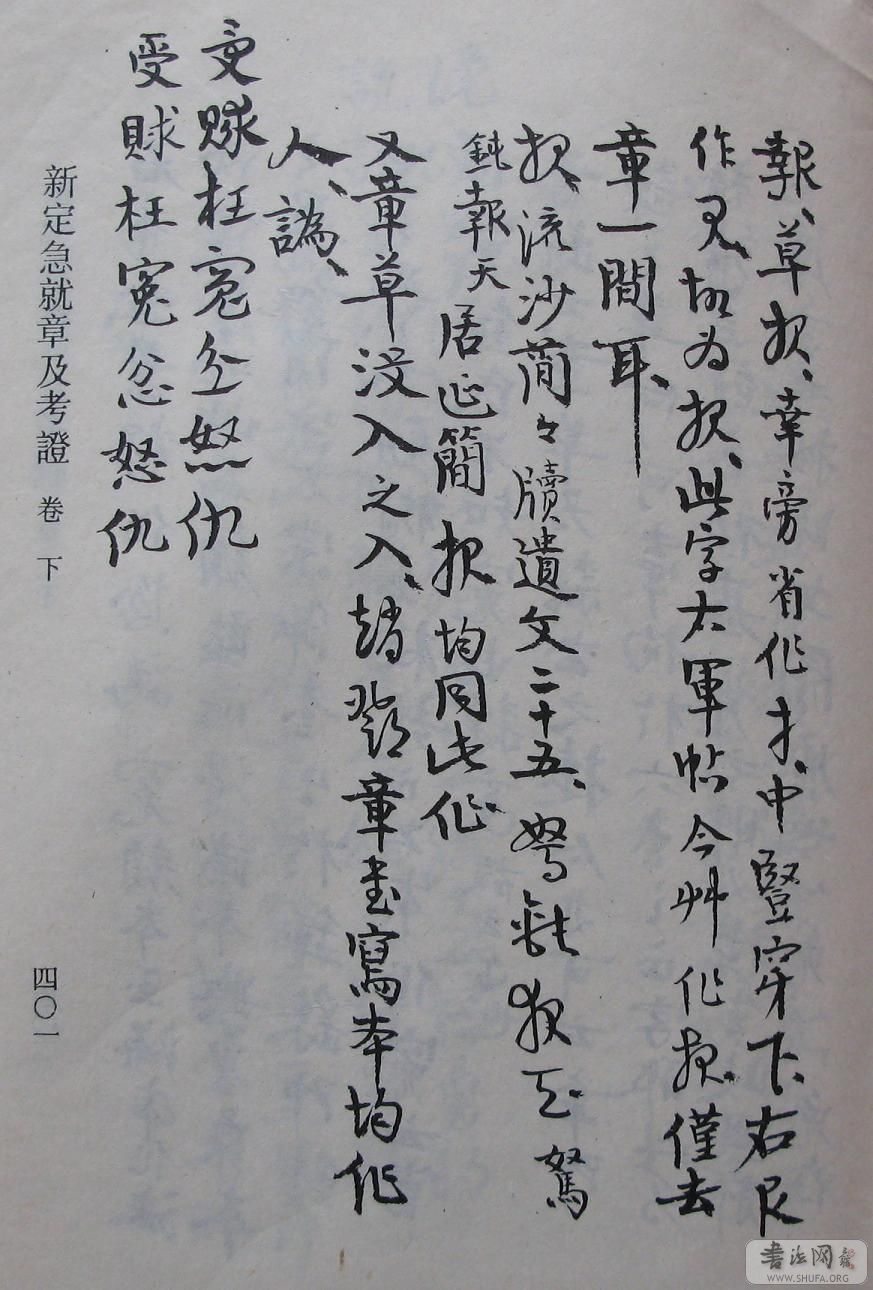 報、草报、幸旁省作扌、中豎穿下、右𠬝
作又、故为报、此字大軍帖今艸作报、僅去
章一間耳、
报、流沙簡々牘遺文二十五、弩鈍报天 駑
鈍報天
居延簡报均同此作、
又章草没入之入、趙鄧章書寫本均作
人、譌、
受賕枉冤忿怒仇
受賕枉冤忿怒仇
新定急就章及考證 卷下
四〇一
書法网
WWW.SHUFA.ORG